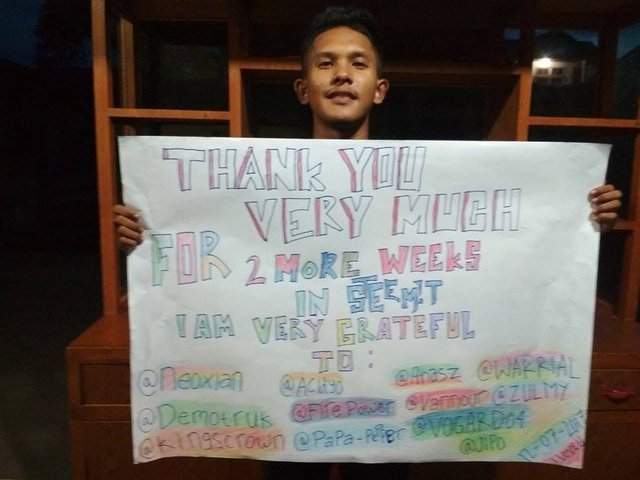 THANK YOU
VERY MUCH
FOR 2 MORE WEEKS
IN STEEMIT
I AM VERY GRATEFUL
TO :
@Neoxian @Acidyo @Anasz @WAKRTAL
@Demotruk @Fire Power @Vannour @ZULMY
@kingscrown @PaPa-PePPer @VOGARD04
@JIPO
12-07-2017